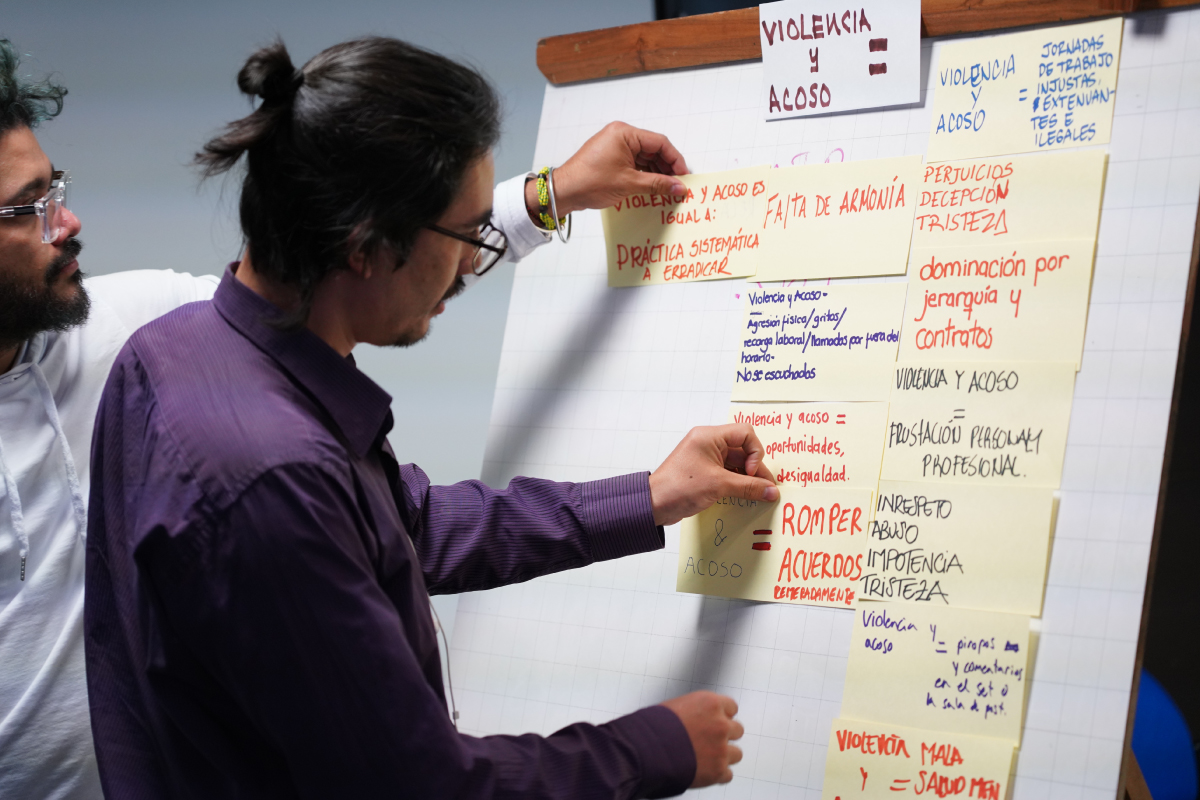 VIOLENCIA
Y =
ACOSO
VIOLENCIA
Y
ACOSO
=
JORNADAS
DE TRABAJO
INJUSTAS,
EXTENUAN-
TES E
ILEGALES
VIOLENCIA Y ACOSO ES
IGUAL A:
PRÁCTICA SISTEMÁTICA
A ERRADICAR
FALTA DE ARMONÍA
PERJUICIOS
DECEPCIÓN
TRISTEZA
dominación por
jerarquía y
contratos
Violencia y Acoso-
Agresión física/gritos/
recarga laboral/llamados por fuera del
horario-
No se escuchados
VIOLENCIA Y ACOSO
=
FRUSTACIÓN PERSONAL Y
PROFESIONAL.
Violencia y acoso =
oportunidades,
desigualdad.
VIOLENCIA
&
ACOSO
=
ROMPER
ACUERDOS
REITERADAMENTE
INRESPETO
ABUSO
IMPOTENCIA
TRISTEZA
Violencia y
acoso
= piropos
y comentarios
en el set o
la sala de post.
VIOLENCIA MALA
Y = SALUD MEN